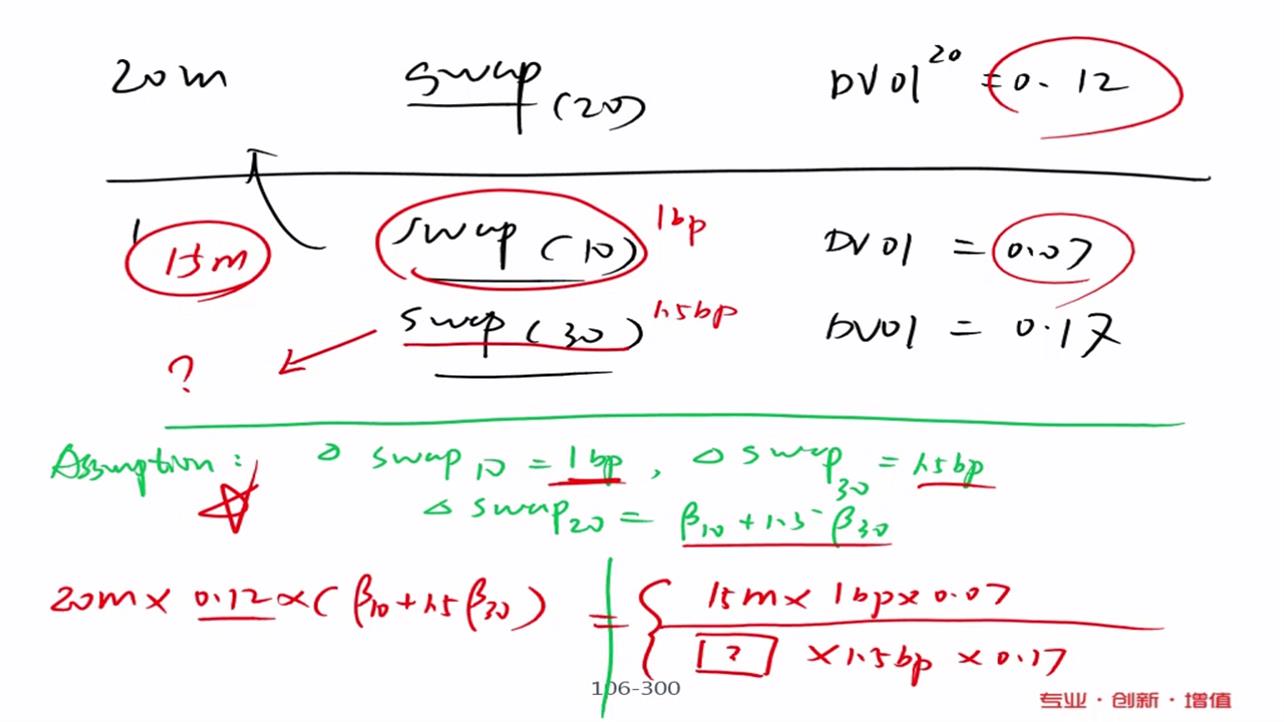 20m swap (20) DV01²⁰ = 0.12
15m swap (10) 1bp DV01 = 0.07
swap (30) 1.5bp DV01 = 0.17
?
Assumption: Δ swap₁₀ = 1bp, Δ swap₃₀ = 1.5bp
Δ swap₂₀ = β₁₀ + 1.5 β₃₀
20m × 0.12 × (β₁₀ + 1.5 β₃₀) = { 15m × 1bp × 0.07
? × 1.5bp × 0.17
106-300
专业·创新·增值